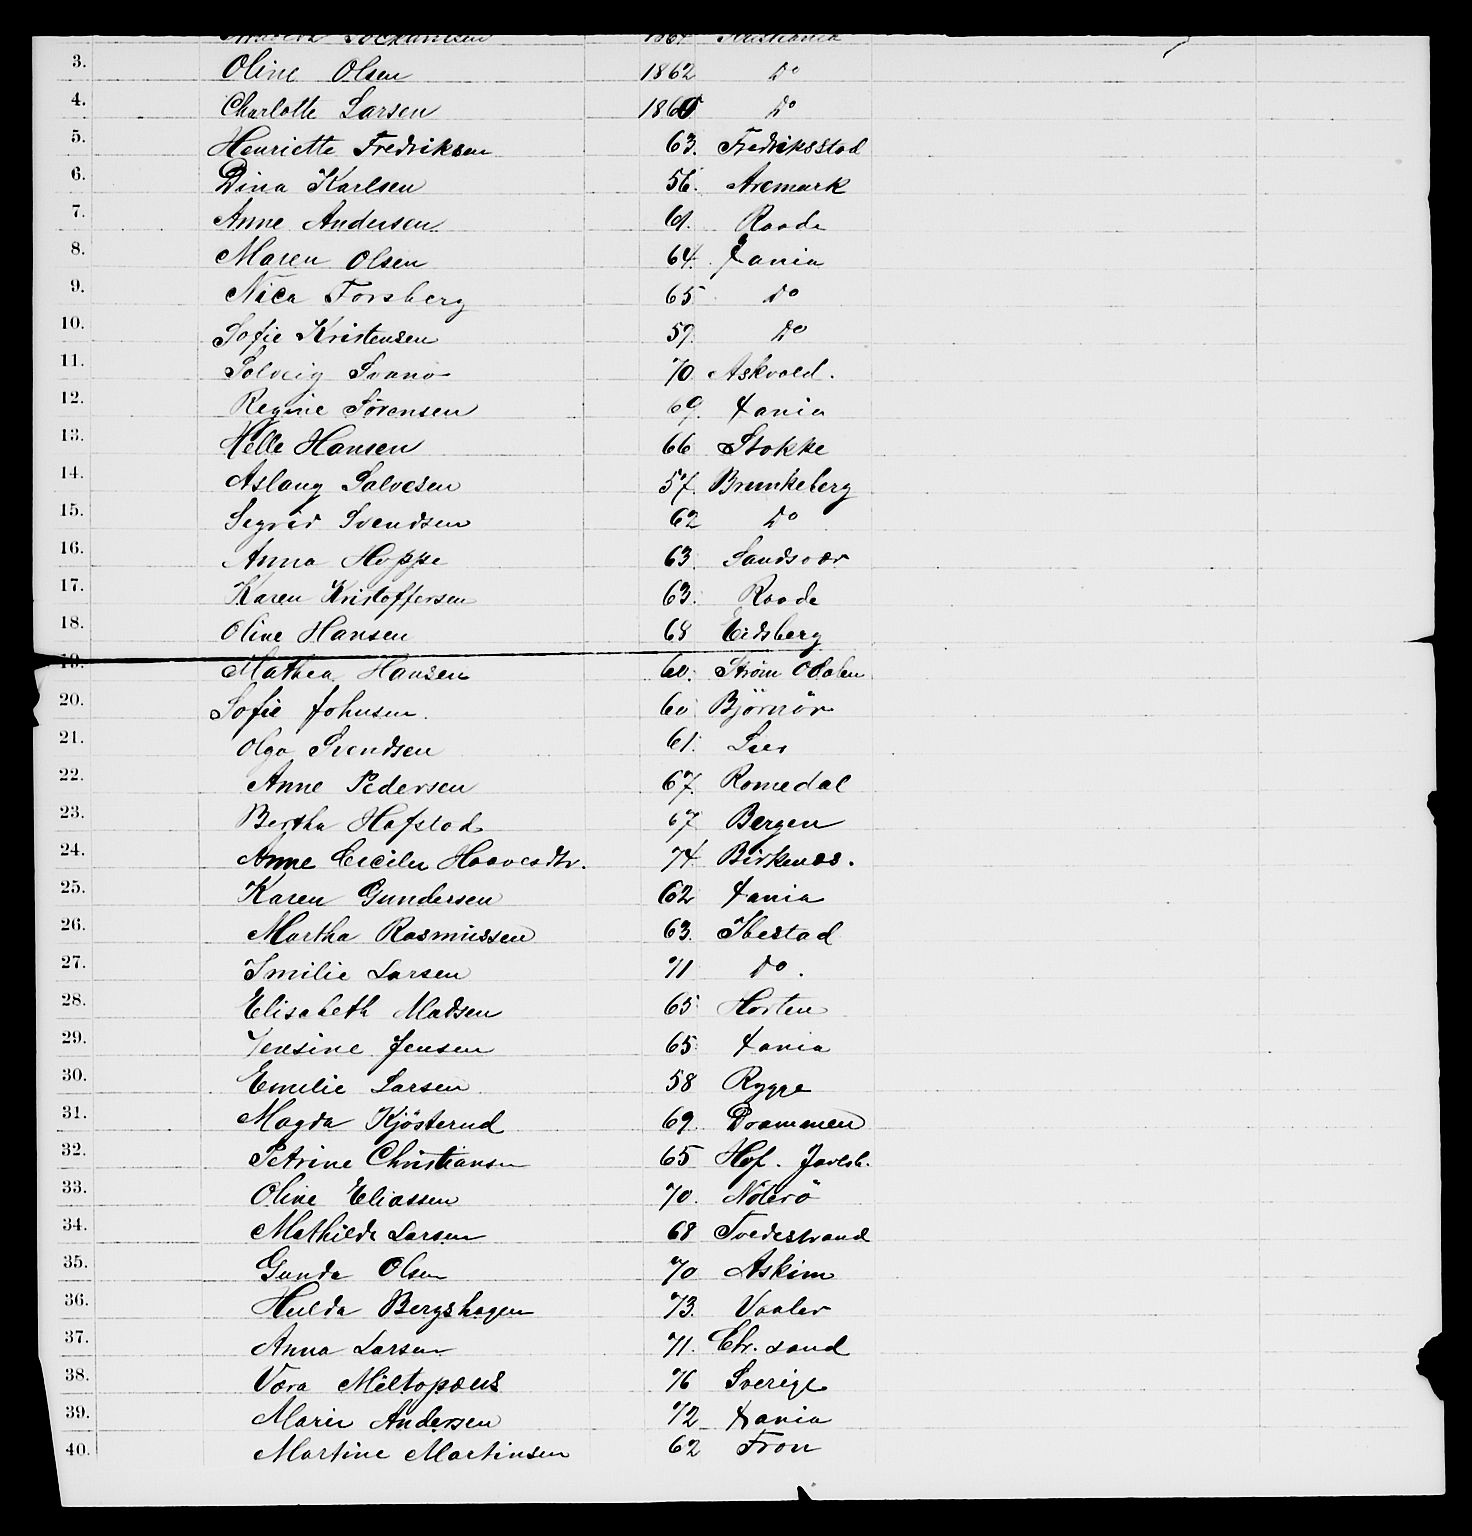 Kristiania
3. Oline Olsen 1862 Do
4. Charlotte Larsen 1860 Do
5. Henriette Fredriksen 63. Fredriksstad
6. Dina Karlsen 56. Aremark
7. Anne Andersen 61. Raade
8. Maren Olsen 64. Xania
9. Nica Forsberg 65 Do
10. Sofie Kristensen 59. Do
11. Solveig Svanø 70. Askvold.
12. Regine Sørensen 69. Xania
13. Helle Hansen 66 Stokke
14. Aslaug Salvesen 57. Brunkeberg
15. Segrid Svendsen 62 Do
16. Anna Hoppe 63. Sandsvær
17. Karen Kristoffersen 63. Raade
18. Oline Hansen 68 Eidsberg
19. Mathea Hansen 60. Strøm Odalen
20. Sofie Johnsen. 60 Bjørnör
21. Olga Svendsen 61.
22. Anne Pedersen 67. Romedal
23. Bertha Hafstad 67 Bergen
24. Anne Cecilie Haavesdtr. 74. Birkenæs.
25. Karen Gundersen 62 Xania
26. Martha Rasmussen 63. Ibestad
27. Imilie Larsen 71 Do.
28. Elisabeth Madsen 65 Horten
29. Jensine Jensen 65. Xania
30. Emilie Larsen 58 Rygge
31. Magda Kjösterud 69. Drammen
32. Petrine Christiansen 65 Hof. Jarlsb.
33. Oline Eliassen 70. Nøterö
34. Mathilde Larsen 68 Tvedestrand
35. Gunda Olsen 70 Askim
36. Hulda Bergshagen 73. Vaaler
37. Anna Larsen 71. Chr. sand
38. Væra Miltopæus 76 Sverige
39. Marie Andersen 72 Xania
40. Martine Martinsen 62 Fron